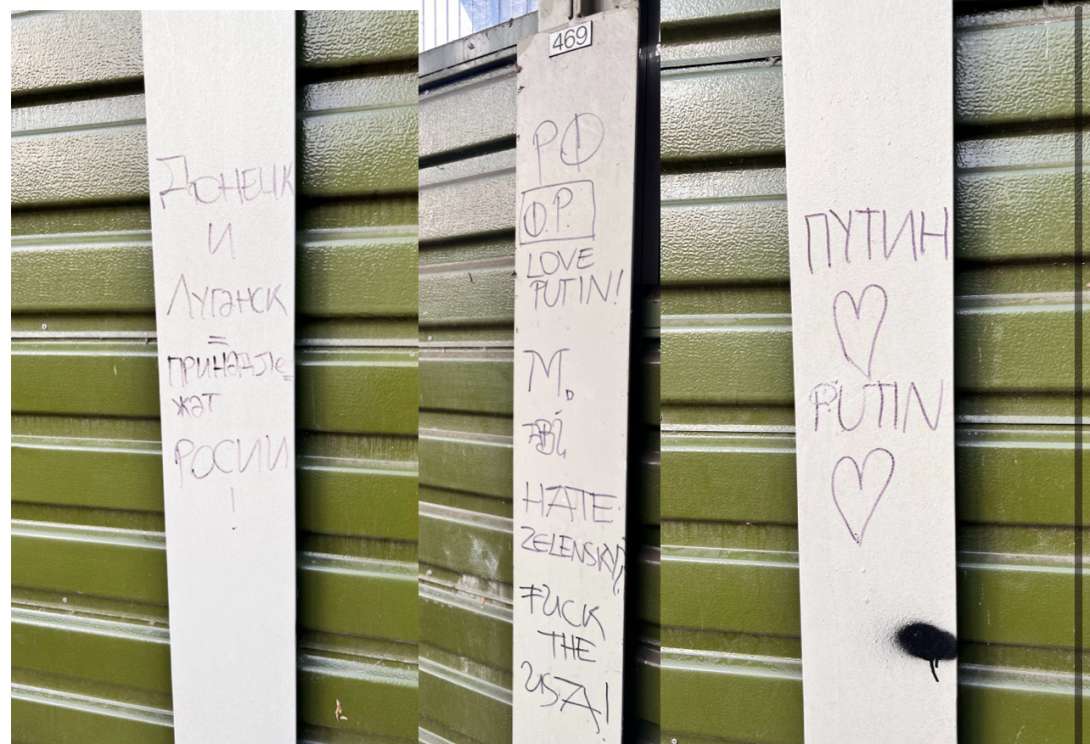 Донецк
и
Луганск
=
принадле-
жат
Росии
!
469
РФ
Ф.Р.
LOVE
PUTIN!
M.
HATE
ZELENSKY!
FUCK
THE
USA!
ПУТИН
♡
PUTIN
♡